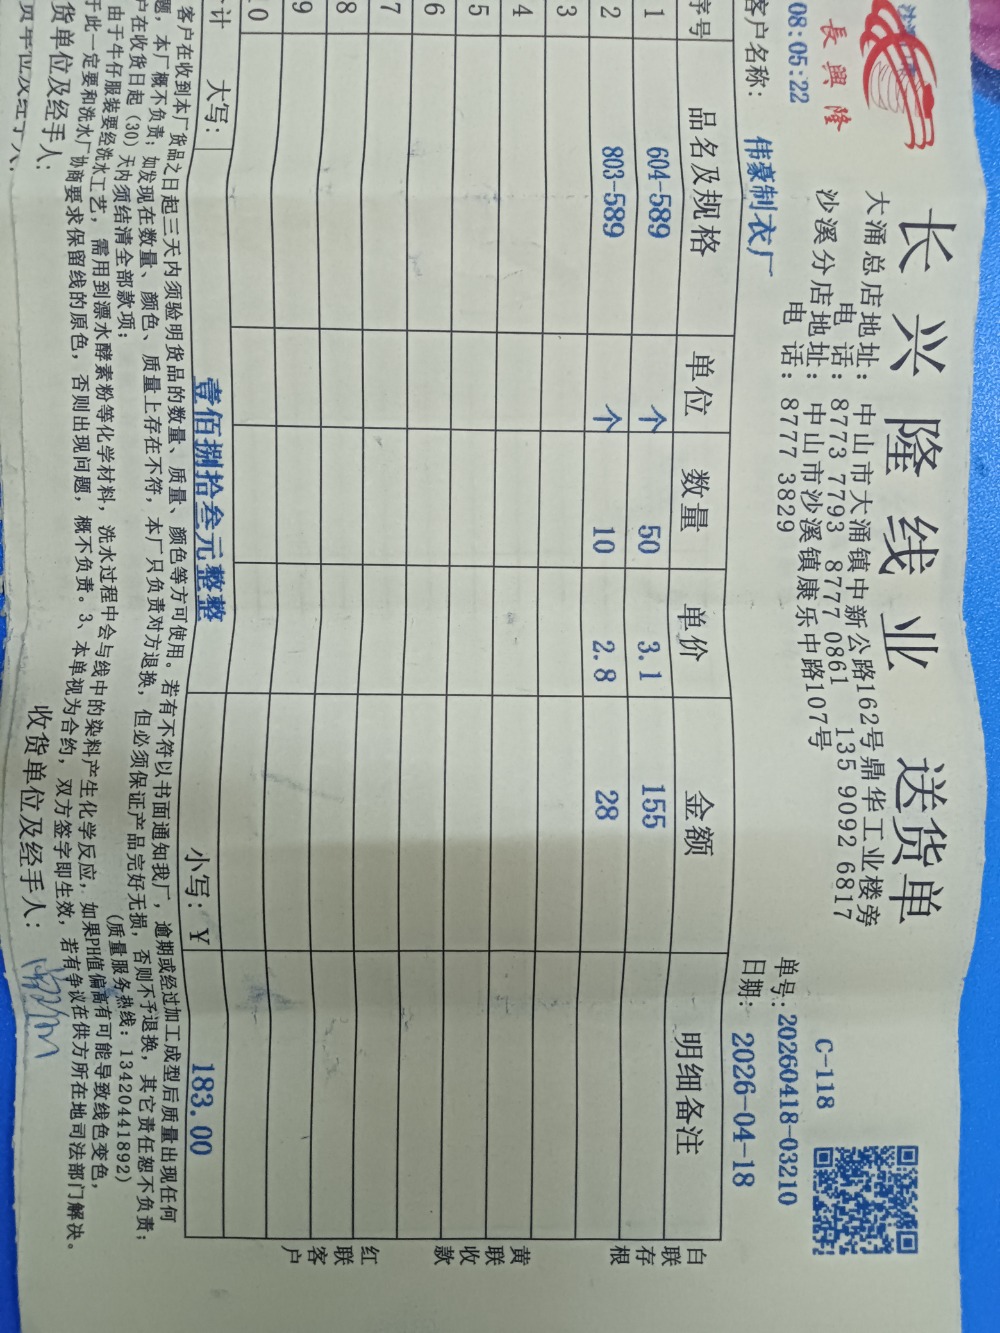 長興隆
长兴隆线业 送货单
大涌总店地址：中山市大涌镇中新公路162号鼎华工业楼旁
电 话：8773 7793 8777 0861 135 9092 6817
沙溪分店地址：中山市沙溪镇康乐中路107号
电 话：8777 3829
C-118
单号：20260418-03210
08:05:22
客户名称：伟豪制衣厂
日期：2026-04-18
序号 品名及规格 单位 数量 单价 金额 明细备注
1 604-589 个 50 3.1 155
2 803-589 个 10 2.8 28
3
4
5
6
7
8
9
10
计 大写：壹佰捌拾叁元整整 小写：￥ 183.00
白联存根
黄联收款
红联客户
客户在收到本厂货品之日起三天内须验明货品的数量、质量、颜色等方可使用。若有不符以书面通知我厂，逾期或经过加工成型后质量出现任何
题，本厂概不负责；如发现在数量、颜色、质量上存在不符，本厂只负责对方退换，但必须保证产品完好无损，否则不予退换，其它责任恕不负责；
户在收货日起（30）天内须结清全部款项；
（质量服务热线：13420441892）
由于牛仔服装要经洗水工艺，需用到漂水酵素粉等化学材料，洗水过程中会与线中的染料产生化学反应，如果PH值偏高有可能导致线色变色，
于此一定要和洗水厂协商要求保留线的原色，否则出现问题，概不负责。3、本单视为合约，双方签字即生效，若有争议在供方所在地司法部门解决。
货单位及经手人： 收货单位及经手人：